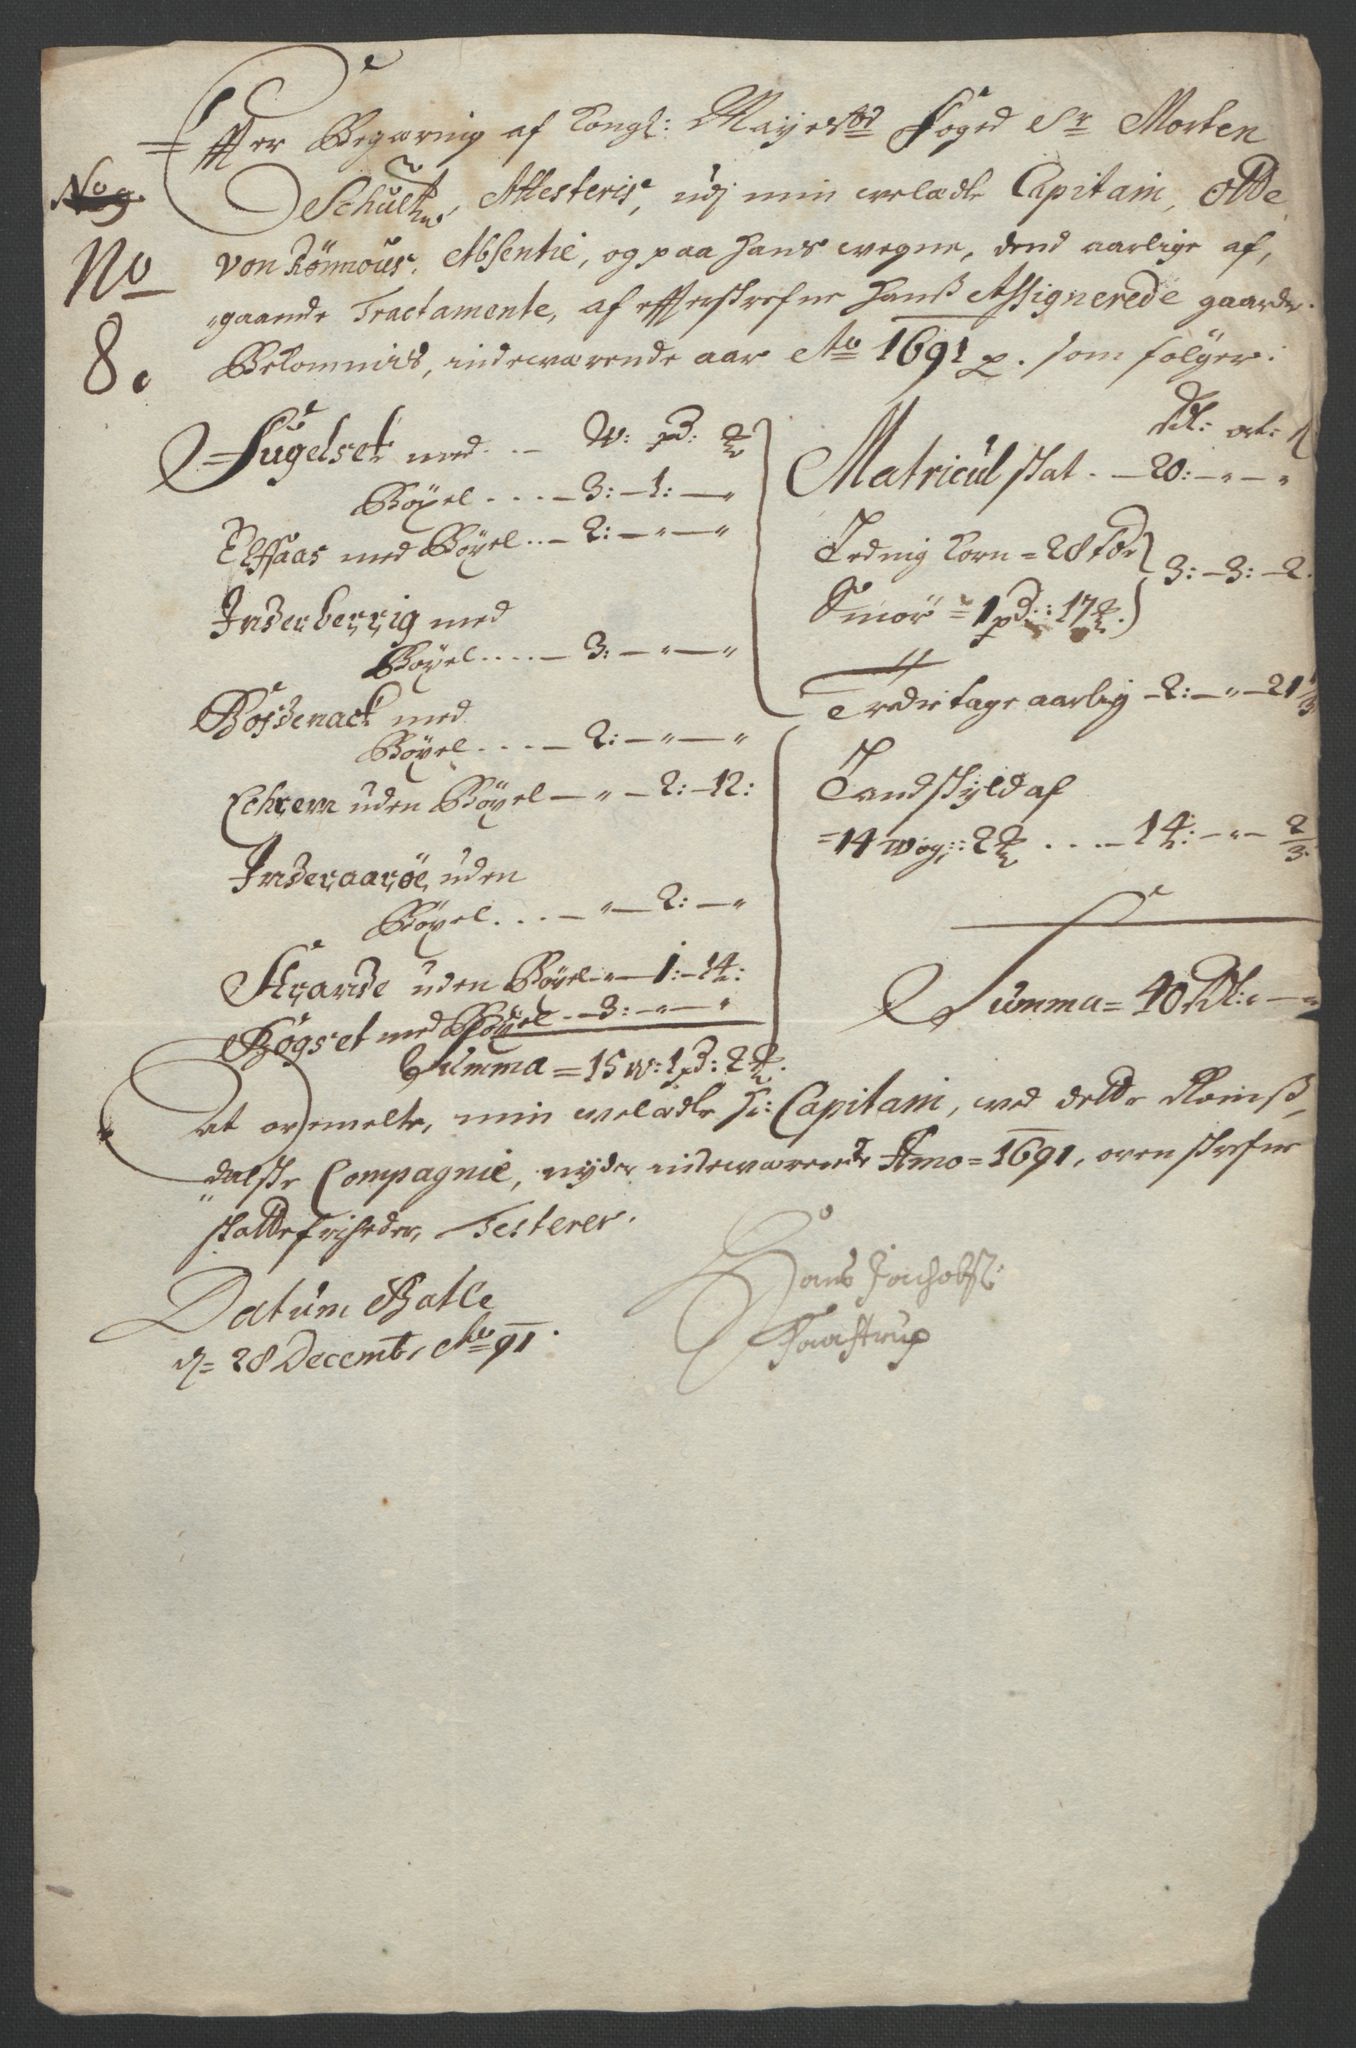 Effter Begæring af Kongl: Mayestds Foged Sr Morten
No 9.
Schultz, Attesteris, udj min veladle Capitain, Otte
No
von Rønnous, Absentie, og paa hans vegne, dend aarlige af,
gaande Tractamente, af effterskrefne hanß Assignerede gaarde.
8.
Bekommis, indeværende aar Ao 1691 p. som følger:
Fugelset med - - W: pd: ℔
Bøxel - - - - 3: - 1: - "
Elffsaas med Bøxel - - 2: - " - "
Inderberrig med
Bøxel - - - - 3: - " - "
Bosdenack med
Bøxel - - - - 2: - " - "
Echrem uden Bøxel - " - 2: - 12:
Inderaarøe uden
Bøxel - - - - " - 2: - "
Strande uden Bøxel - " - 1: - 14:
Bøgset med Bøxel - - 3: - " - "
Summa = 15 w: 1 pd: 2 ℔.
Rdl: ort:
Matricul skat - - 20: - " - "
Leding Korn = 28 Fdr
3: - 3: - 2.
Smør = 1 pd: 17 ℔.
Tredietage aarlig - 2: - " - 21 1/3
Landskyld af
= 14 wog: 2 ℔ - - - 14: - " - 2/3
Summa = 40 Rdl: - "
At ovenmelte, min veladle Hr: Capitain, ved dette Romß,
dalske Compagnie, nyder indeværende Anno = 1691, ovenskrefne
skattefriheder, Testerer.
Datum Batle
d = 28 Decemb. Ao 91.
Hans Jachobß:
Taastrup